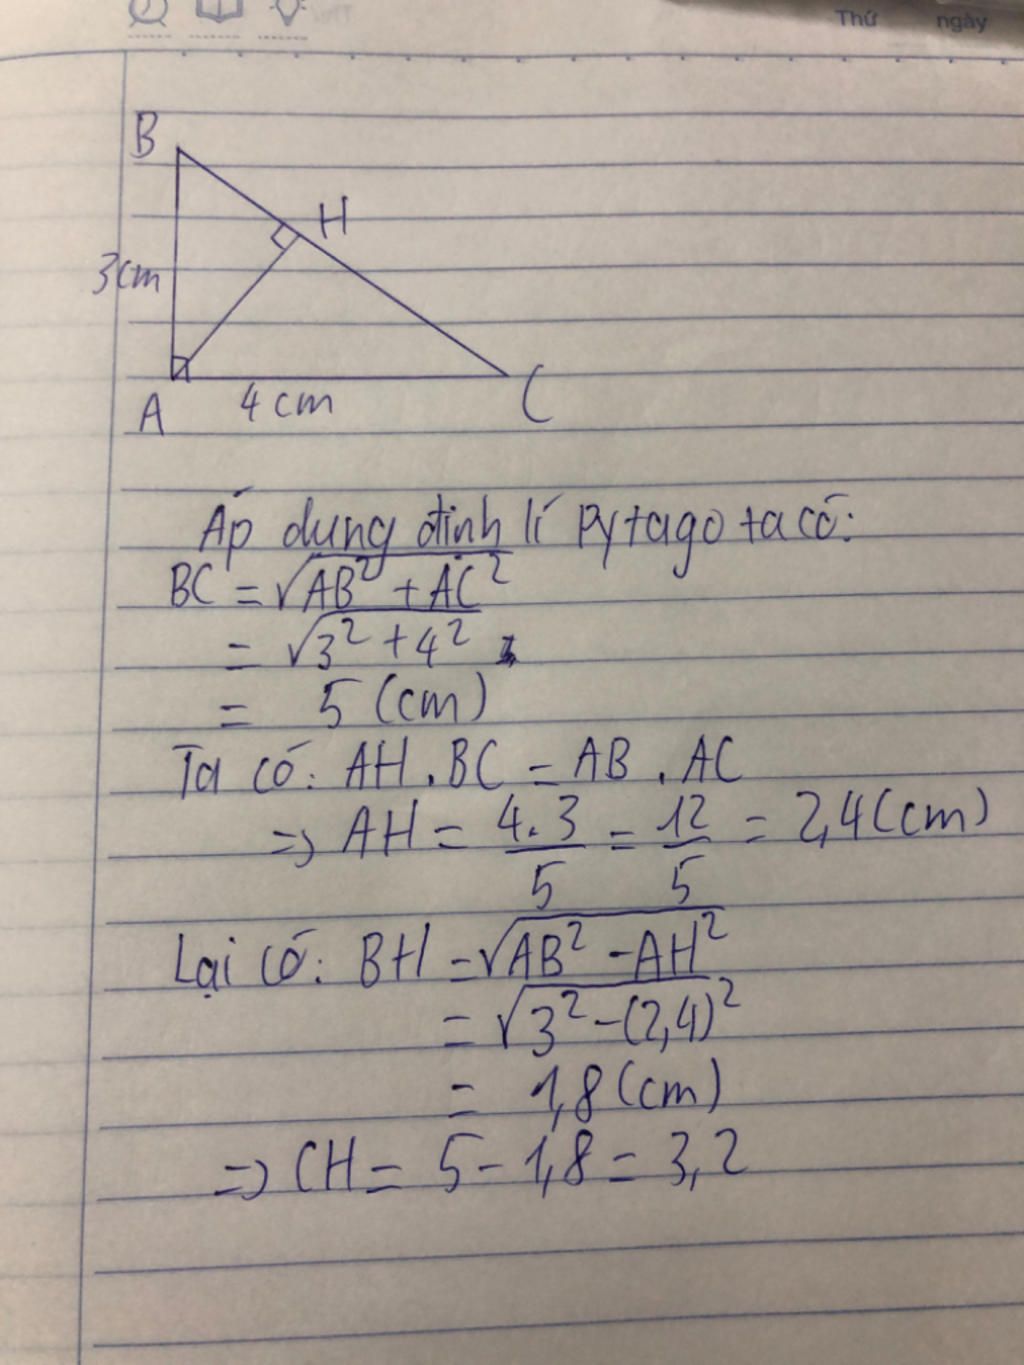 Thứ ngày
B
H
3cm
A 4cm C
Áp dụng định lí Pytago ta có:
BC = √AB² + AC²
= √3² + 4²
= 5 (cm)
Ta có: AH . BC = AB . AC
=> AH = 4.3/5 = 12/5 = 2,4 (cm)
Lại có: BH = √AB² - AH²
= √3² - (2,4)²
= 1,8 (cm)
=> CH = 5 - 1,8 = 3,2